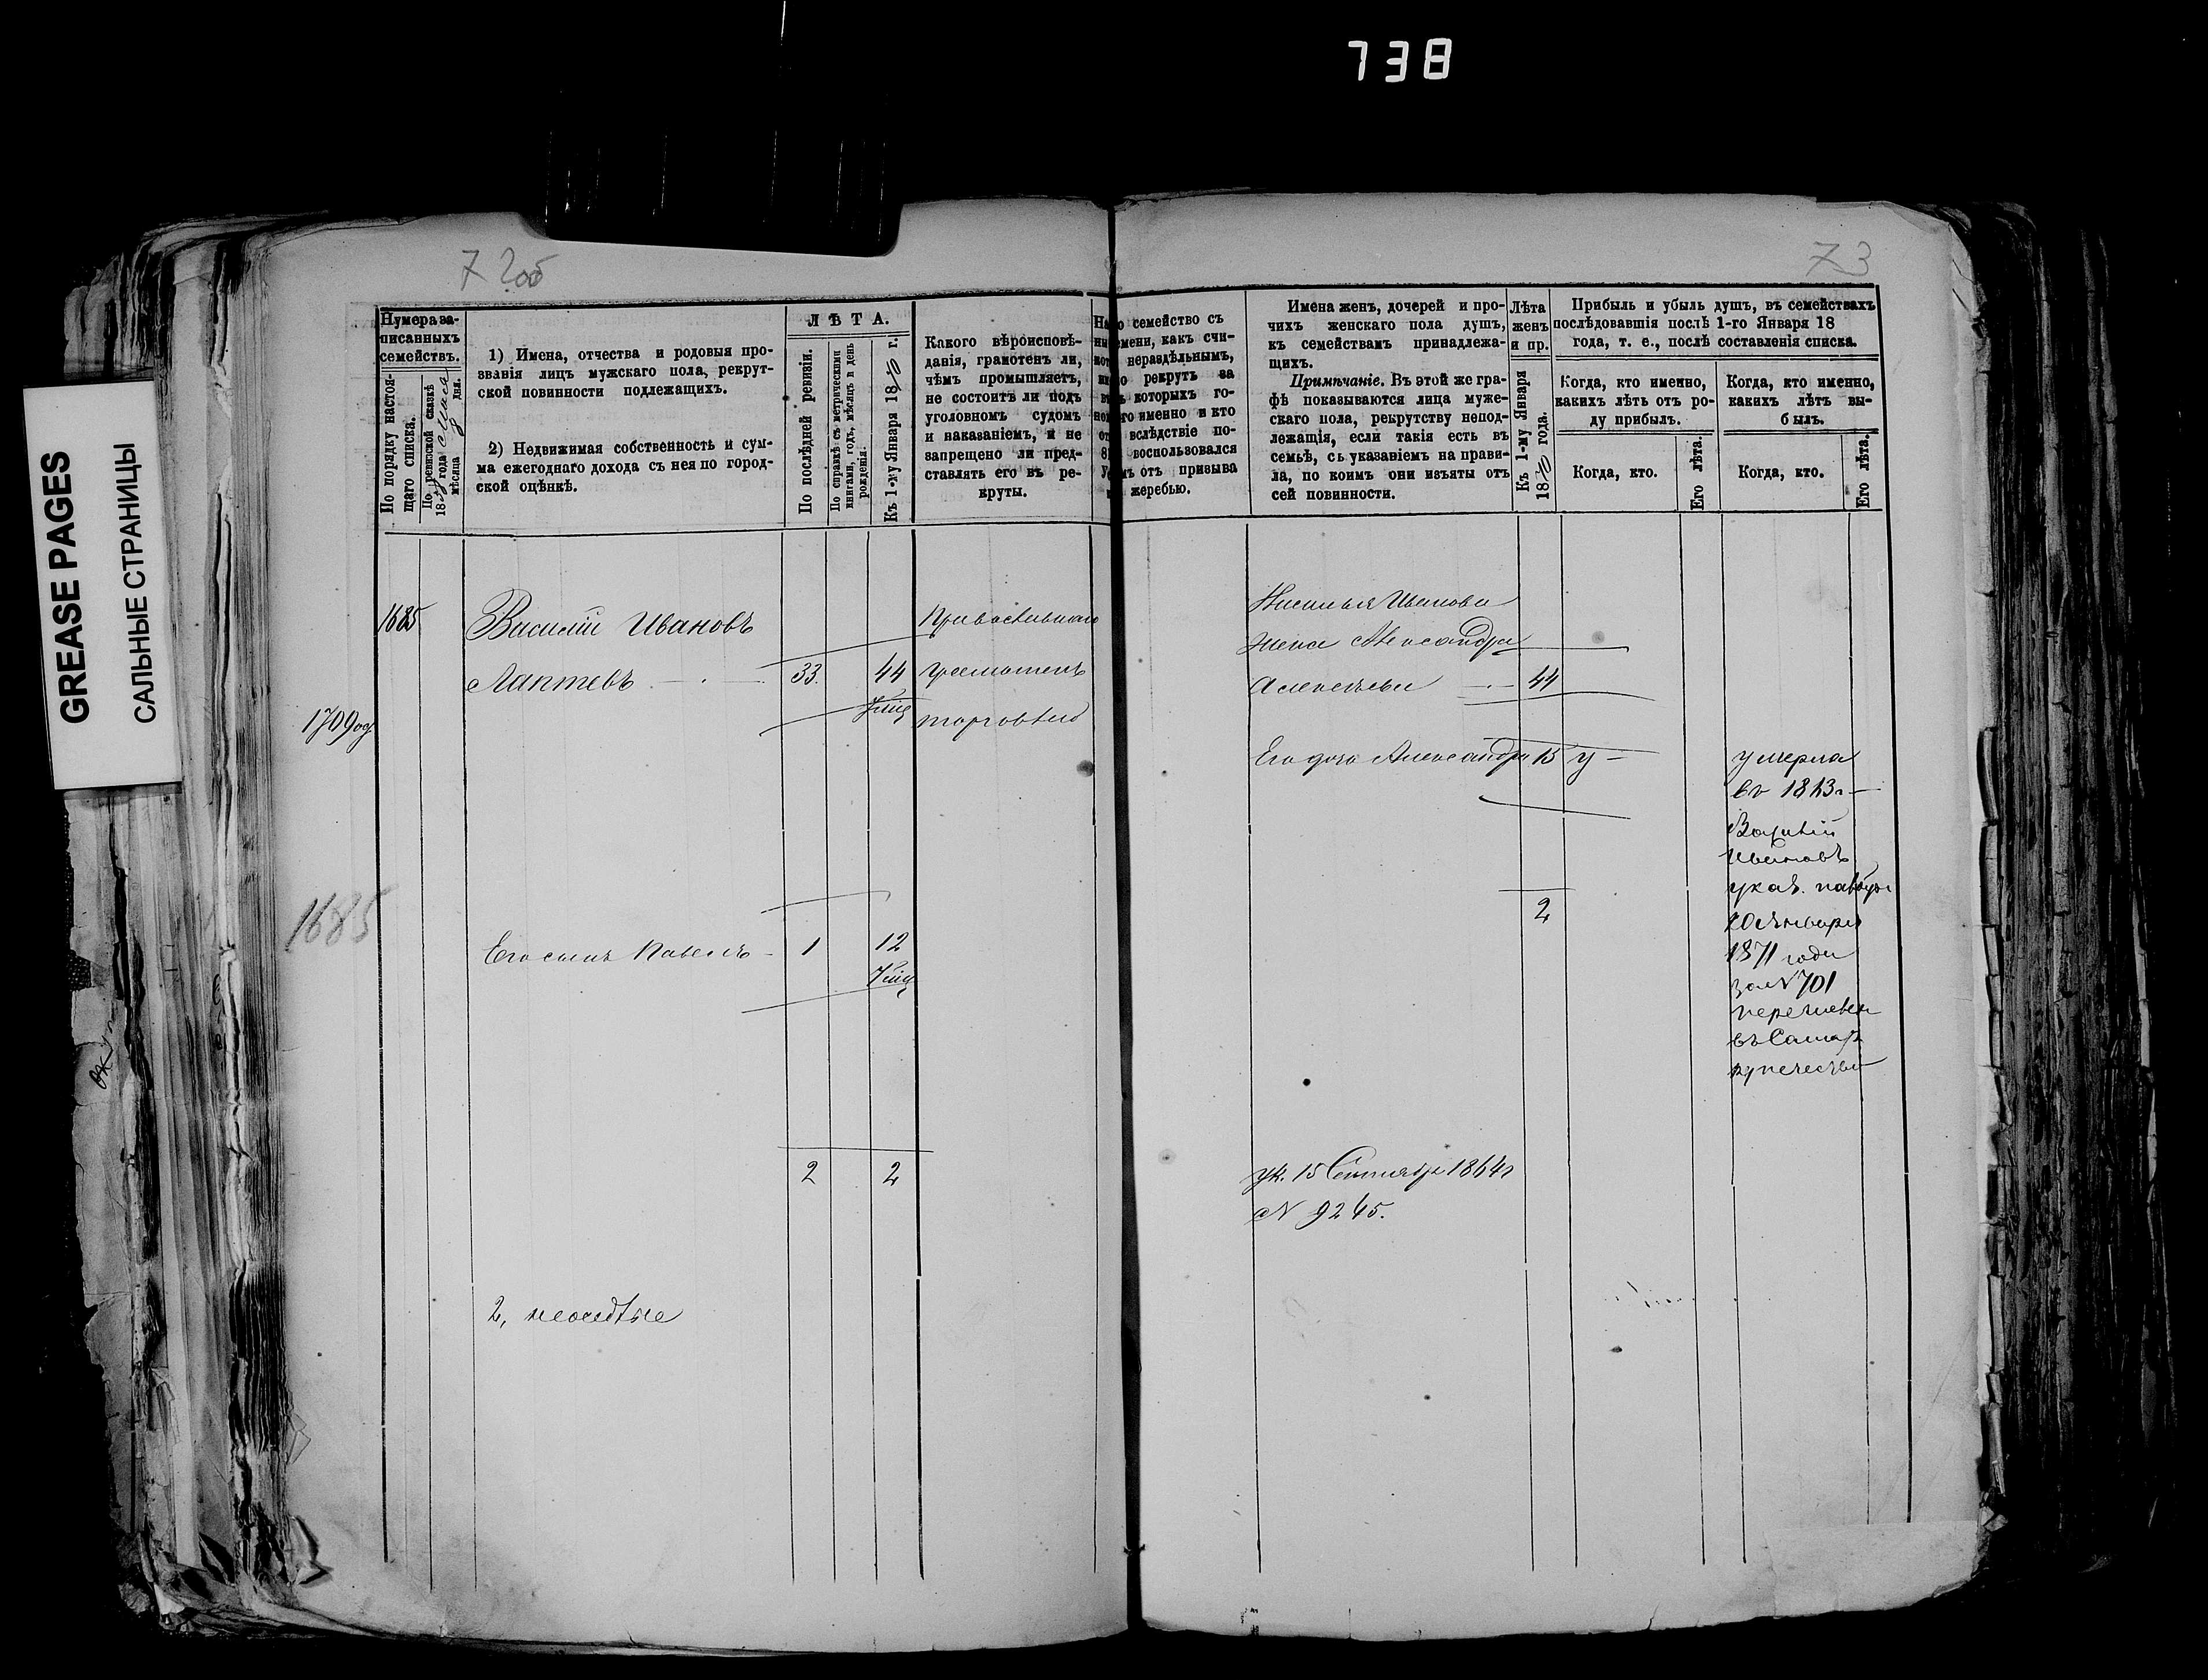 738
GREASE PAGES
САЛЬНЫЕ СТРАНИЦЫ
72об
73
Нумера за-
писанныхъ
семействъ.
По порядку настоя-
щаго списка.
По ревизской сказкѣ
18 года
мѣсяца дня.
1) Имена, отчества и родовыя про-
званія лицъ мужскаго пола, рекрут-
ской повинности подлежащихъ.
2) Недвижимая собственность и сум-
ма ежегоднаго дохода съ нея по город-
ской оцѣнкѣ.
ЛѢТА.
По послѣдней ревизіи.
По справкѣ съ метрическими
книгами, годъ, мѣсяцъ и день
рожденія.
Къ 1-му Января 1870 г.
Какого вѣроисповѣ-
данія, грамотенъ ли,
чѣмъ промышляетъ,
не состоитъ ли подъ
уголовномъ судомъ
и наказаніемъ, и не
запрещено ли пред-
ставлять его въ ре-
круты.
семейство съ
какъ счи-
нераздѣльнымъ,
рекрутъ за
которыхъ го-
именно и кто
вслѣдствіе по-
воспользовался
отъ призыва
жеребью.
Имена женъ, дочерей и про-
чихъ женскаго пола душъ,
къ семействамъ принадлежа-
щихъ.
Примѣчаніе. Въ этой же гра-
фѣ показываются лица муже-
скаго пола, рекрутству непод-
лежащія, если такія есть въ
семьѣ, съ указаніемъ на прави-
ла, по коимъ они изъяты отъ
сей повинности.
Лѣта
женъ
и пр.
Къ 1-му Января
1870 года.
Прибыль и убыль душъ, въ семействахъ
послѣдовавшія послѣ 1-го Января 18
года, т. е., послѣ составленія списка.
Когда, кто именно,
какихъ лѣтъ отъ ро-
ду прибылъ.
Когда, кто.
Его лѣта.
Когда, кто именно,
какихъ лѣтъ вы-
былъ.
Когда, кто.
Его лѣта.
1685
Василій Ивановъ
Лаптевъ 33. 44
1709
1685
Его сынъ Павелъ 1 12
2 2
Православнаго
грамотенъ
торговлею
Василья Иванова
жена Александра
Алексѣева 44
Его дочь Александра 15 у
2
ук. 15 Сентября 1864г
N 9245.
умерла
въ
Василій
Ивановъ
указ.
Января
1871 года
за N 701
въ Самар
купечество
2,